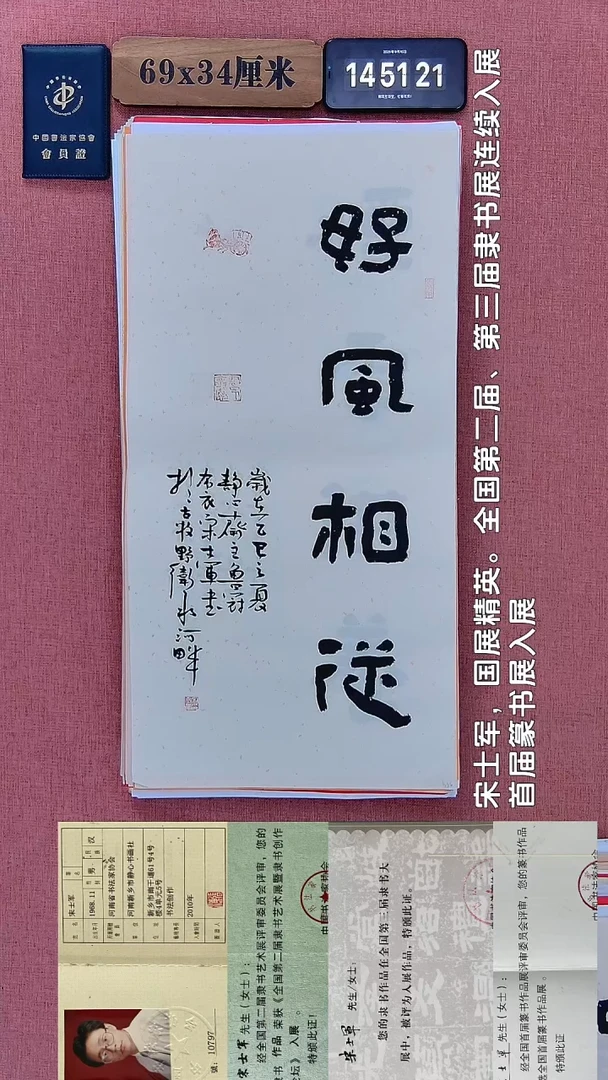 中国书法家协会
會員證
69x34厘米
14 51 21
好風相従
歲在乙巳之夏
靜心齋主魚羽
布衣宋士軍書
於古牧野衛水河畔
宋士军，国展精英。全国第二届、第三届隶书展连续入展
首届篆书展入展
宋士军
1968.11
男
汉
河南省书法家协会
河南新乡市静心书画社
新乡市南干道61号4号
楼4单元5号
书法创作
2010年
號：10797
宋士军 先生（女士）：
经全国第二届隶书艺术展评审委员会评审，您的
隶书 作品 荣获《全国第二届隶书艺术展暨隶书创作
论坛》 入展 。
特颁此证！
宋士军 先生/女士：
您的隶书作品在全国第三届隶书大
展中，被评为入展作品，特颁此证。
士军 先生（女士）：
经全国首届篆书作品展评审委员会评审，您的篆书作品
全国首届篆书作品展。
特颁此证